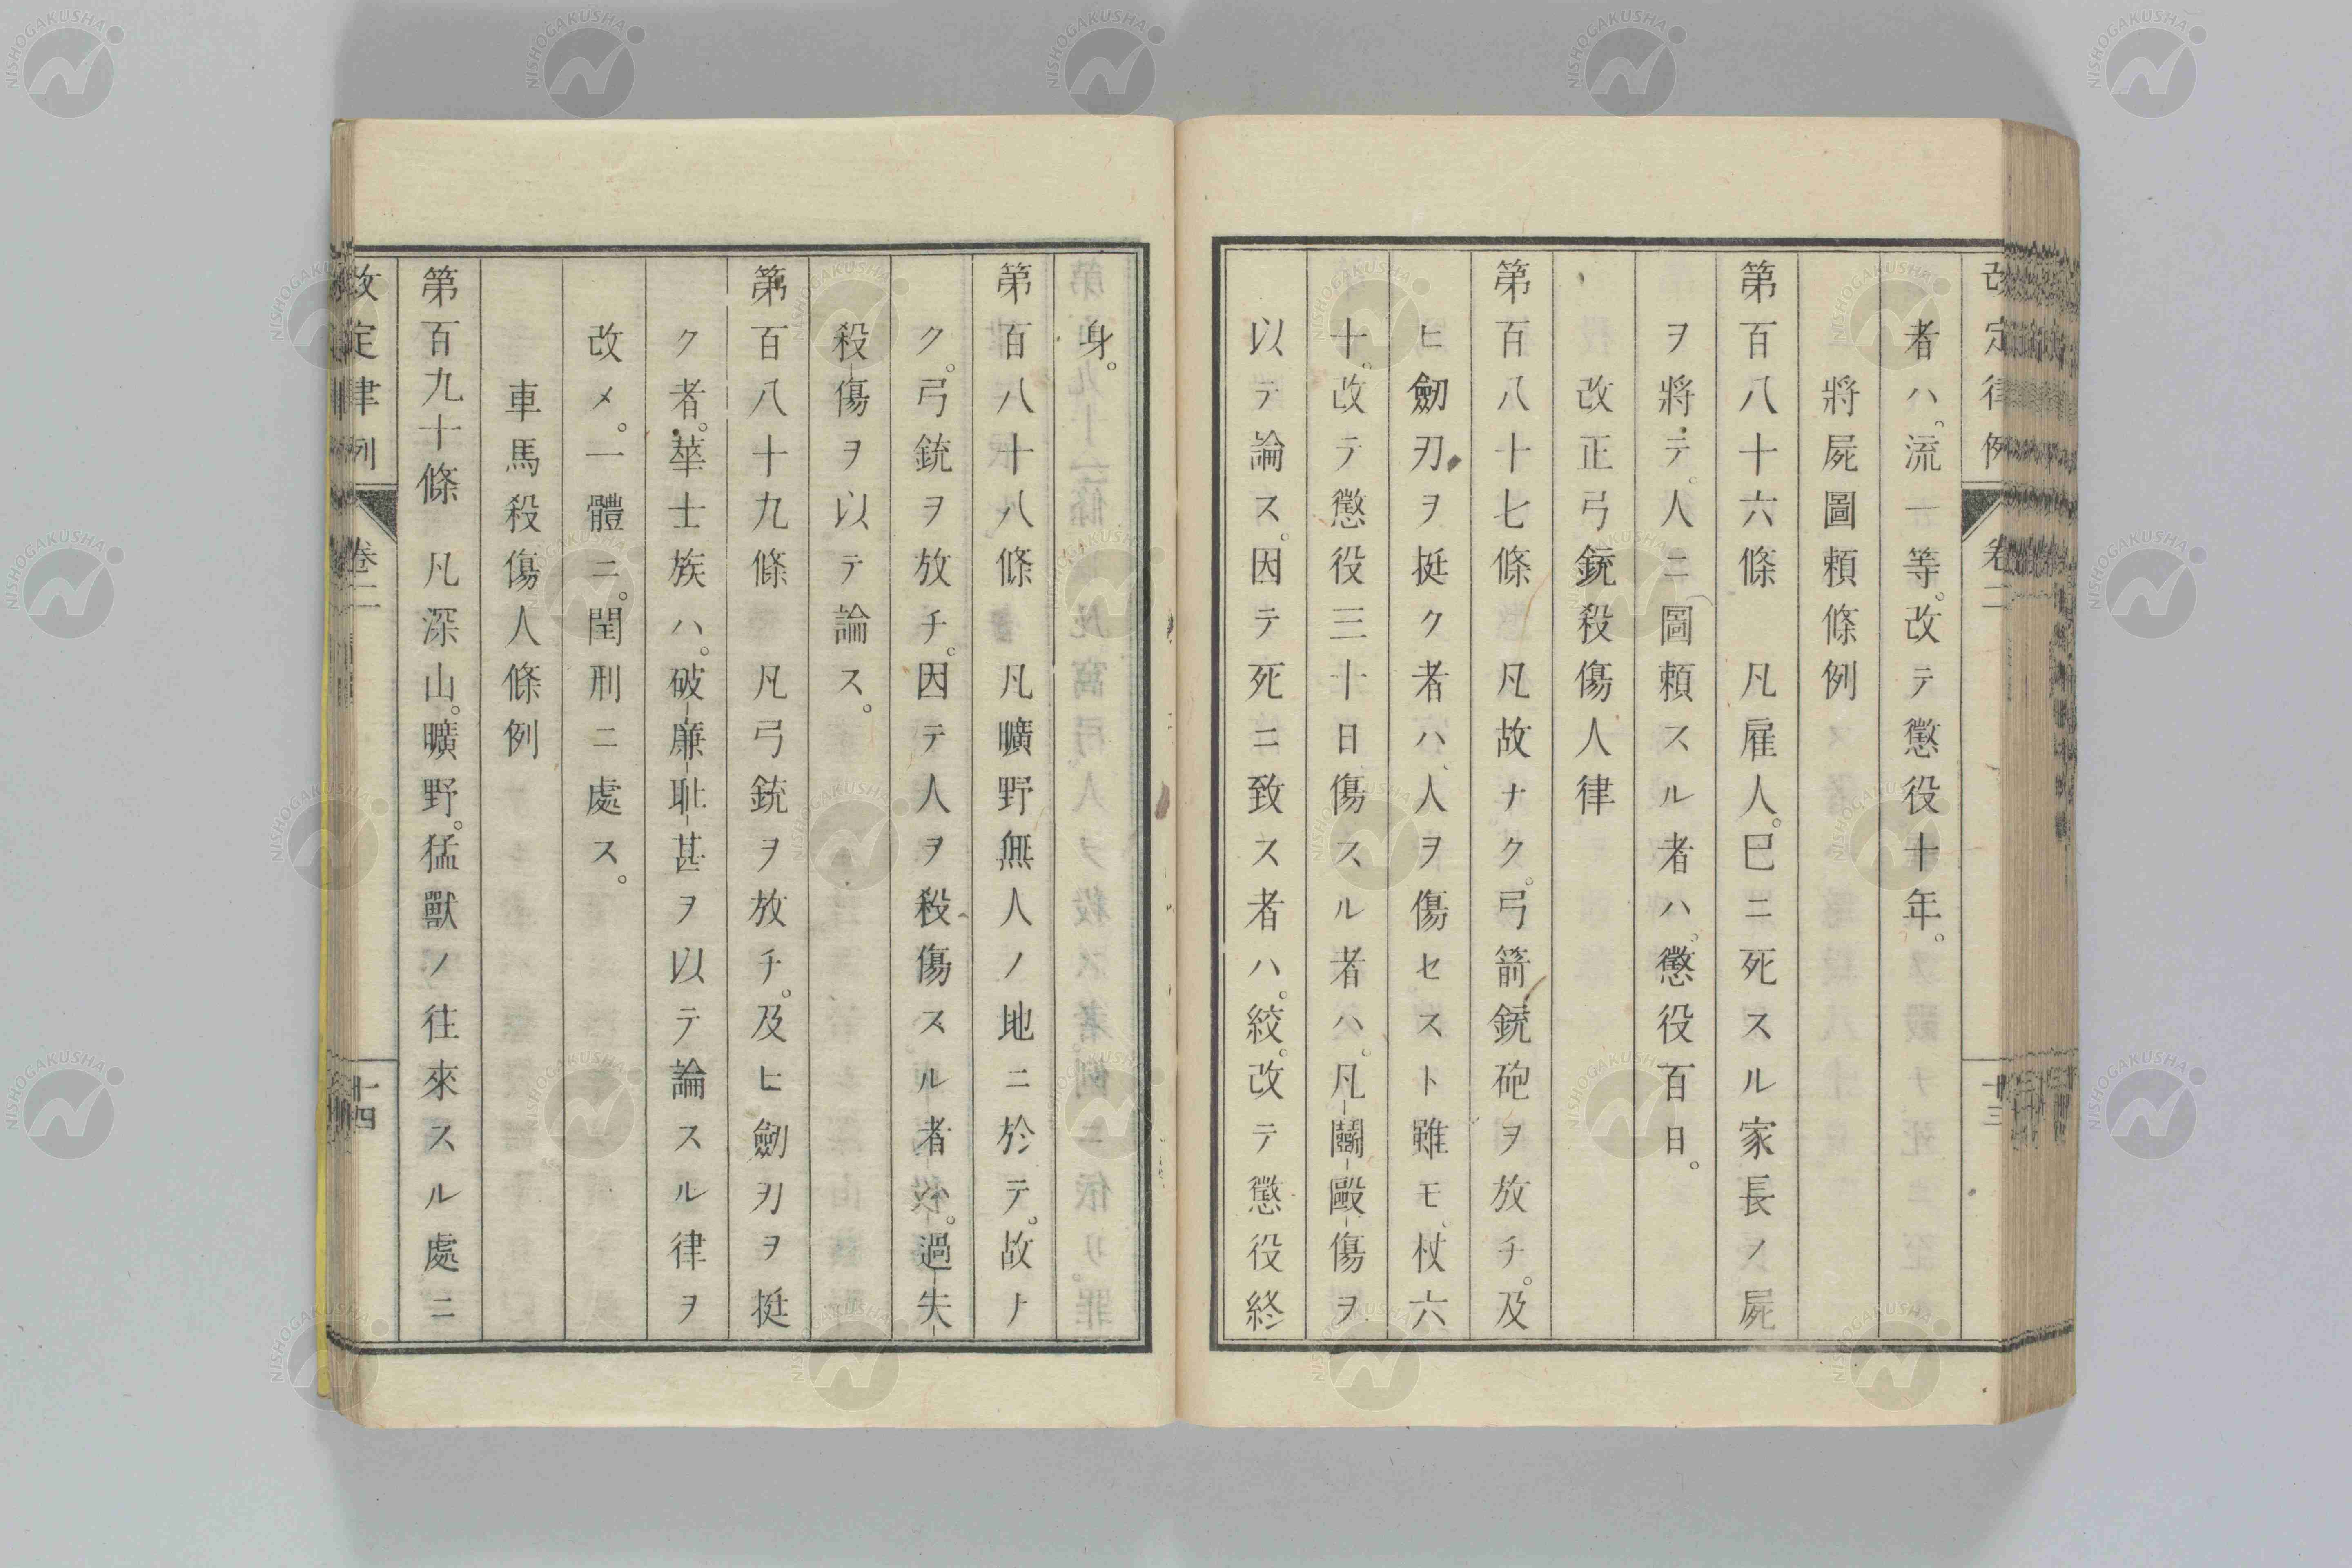 改定律例 卷二 十三
者ハ。流一等。改テ懲役十年。
將屍圖賴條例
第百八十六條　凡雇人。巳ニ死スル家長ノ屍
ヲ將テ。人ニ圖賴スル者ハ。懲役百日。
改正弓銃殺傷人律
第百八十七條　凡故ナク。弓箭銃砲ヲ放チ。及
ヒ劒刃ヲ挺ク者ハ、人ヲ傷セスト雖モ、杖六
十。改テ懲役三十日傷スル者ハ。凡鬪毆傷ヲ
以テ論ス。因テ死ニ致ス者ハ。絞。改テ懲役終
身。
第百八十八條　凡曠野無人ノ地ニ於テ。故ナ
ク。弓銃ヲ放チ。因テ人ヲ殺傷スル者ハ。過失
殺傷ヲ以テ論ス。
第百八十九條　凡弓銃ヲ放チ。及ヒ劒刃ヲ挺
ク者。華士族ハ。破廉耻甚ヲ以テ論スル律ヲ
改メ。一體ニ。閏刑ニ處ス。
車馬殺傷人條例
第百九十條　凡深山。曠野。猛獸ノ往來スル處ニ
改定律例 卷二 十四
NISHOGAKUSHA